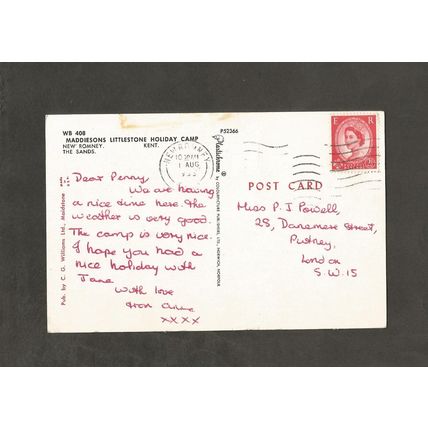 WB 408
MADDIESONS LITTLESTONE HOLIDAY CAMP
NEW ROMNEY. KENT.
THE SANDS.
P52366
Dear Penny,
We are having
a nice time here. The
weather is very good.
The camp is very nice.
I hope you had a
nice holiday with
Jane
With love
from Anne
xxxx
Pub. by C. G. Williams Ltd., Maidstone
Plastichrome ®
by COLOURPICTURE PUBLISHERS, LTD.,
NEW ROMNEY
KENT
1 AUG
E R
POST CARD
Miss P. J Powell,
25, Danemere Street,
Putney,
London
S.W. 15